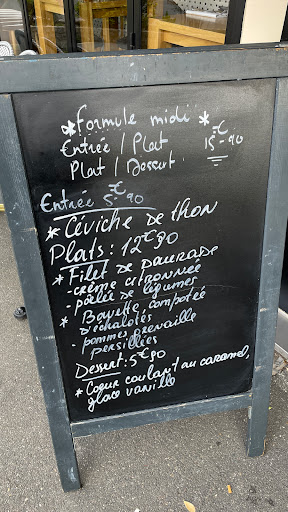 *Formule midi*
Entrée / Plat
Plat / Dessert
15€90
Entrée 5€90
* Céviche De thon
Plats: 12€90
* Filet de Daurade
- crème citronnée
- poêlée de légumes
* Bavette, compotée
D'échalotés
- pommes grenaille
persillées
Dessert: 5€90
* Coeur coulant au caramel,
glace vanille